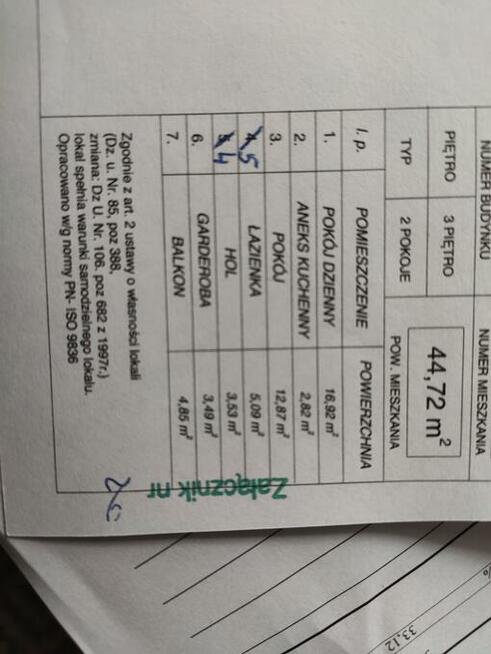 NUMER BUDYNKU NUMER MIESZKANIA
PIĘTRO 3 PIĘTRO 44,72 m²
TYP 2 POKOJE POW. MIESZKANIA
l. p. POMIESZCZENIE POWIERZCHNIA
1. POKÓJ DZIENNY 16,92 m²
2. ANEKS KUCHENNY 2,82 m²
3. POKÓJ 12,87 m²
4. 5 ŁAZIENKA 5,09 m²
5. 4 HOL 3,53 m²
6. GARDEROBA 3,49 m²
7. BALKON 4,85 m²
Załącznik nr
Zgodnie z art. 2 ustawy o własności lokali
(Dz. u. Nr. 85, poz 388,
zmiana: Dz U. Nr. 106. poz 682 z 1997r.)
lokal spełnia warunki samodzielnego lokalu.
Opracowano w/g normy PN- ISO 9836
33,12